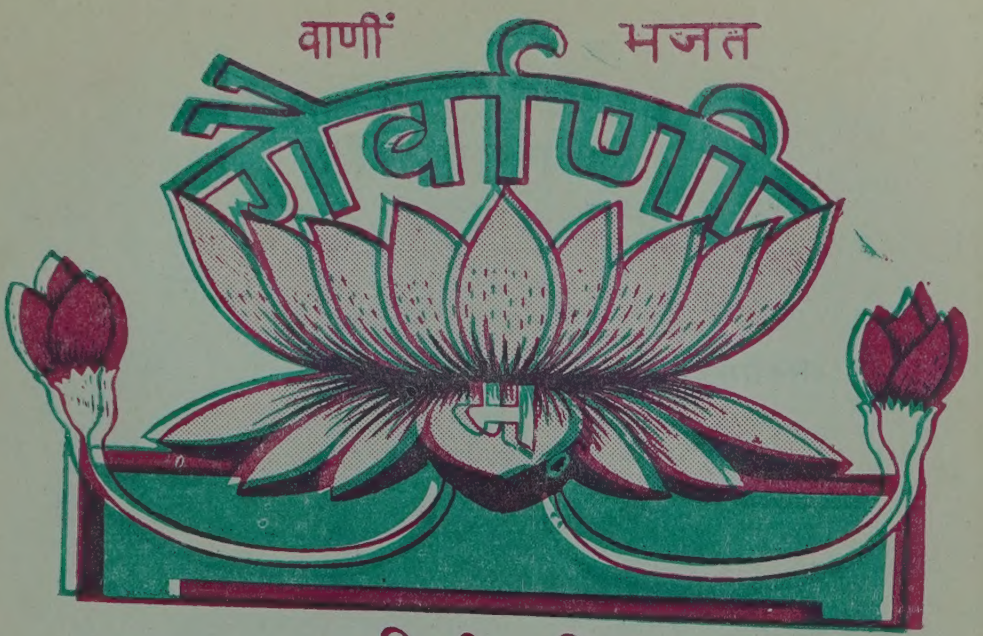 वाणीं भजत
गैर्वाणी